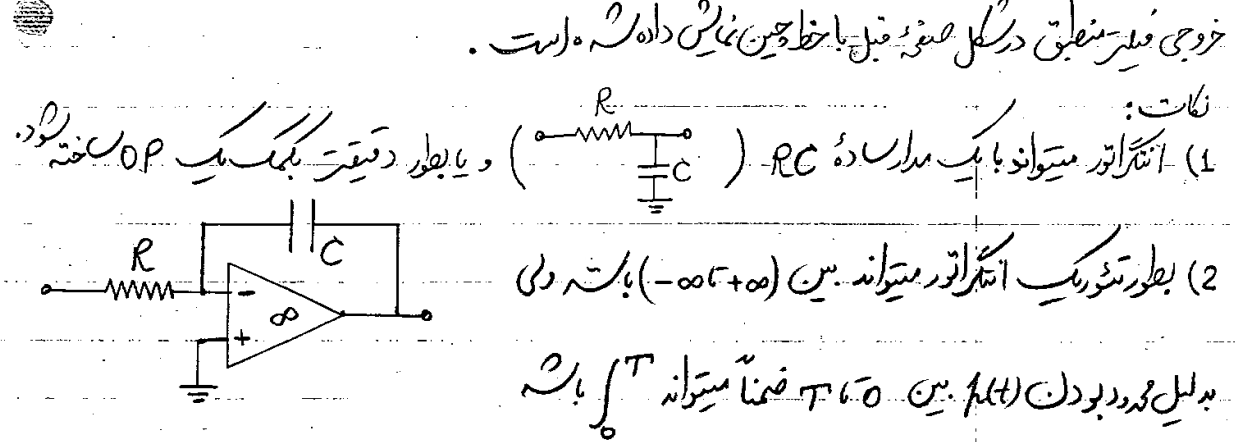 خروجی فیلتر منطبق در شکل صفحهٔ قبل با خط چین نمایش داده شده است .
نکات :
1) انتگراتور میتواند با یک مدار سادهٔ RC ( R C ) و یا بطور دقیقتر بکمک یک OP ساخته شود.
R C - + ∞
2) بطور تئوریک انتگراتور میتواند بین (-∞ تا +∞) باشد ولی
بدلیل محدود بودن p(t) بین 0 تا T ضمناً میتواند ∫₀ᵀ باشد